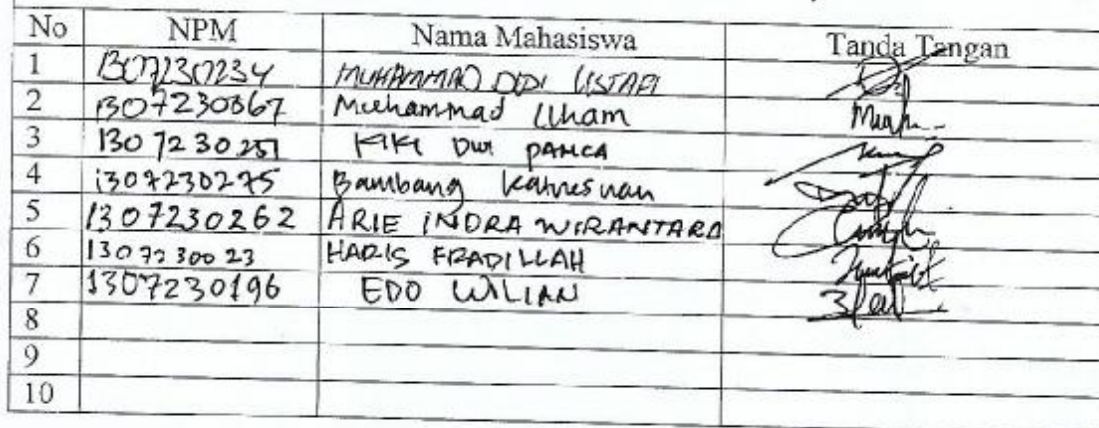 No NPM Nama Mahasiswa Tanda Tangan
1 1307230234 MUHAMMAD DEDI
2 1307230067 Muhammad Ilham
3 1307230251 KIKI DWI PANCA
4 1307230275 Bambang
5 1307230262 ARIE INDRA WIRANTARA
6 1307230023 HARIS FRADILLAH
7 1307230196 EDO WILIAN
8
9
10